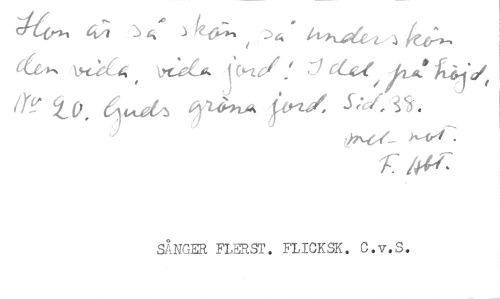 Hon är så skön, så underskön
den vida, vida jord! I dal, på höjd,
No 20. Guds gröna jord. Sid. 38.
mel. not.
F. Abt.
SÅNGER FLERST. FLICKSK. C.v.S.